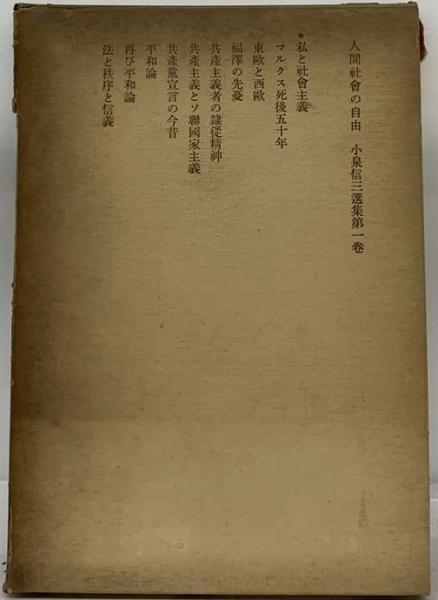 人間社會の自由　小泉信三選集第一卷
私と社會主義
マルクス死後五十年
東歐と西歐
福澤の先憂
共產主義者の隷從精神
共產主義とソ聯國家主義
共產黨宣言の今昔
平和論
再び平和論
法と秩序と信義